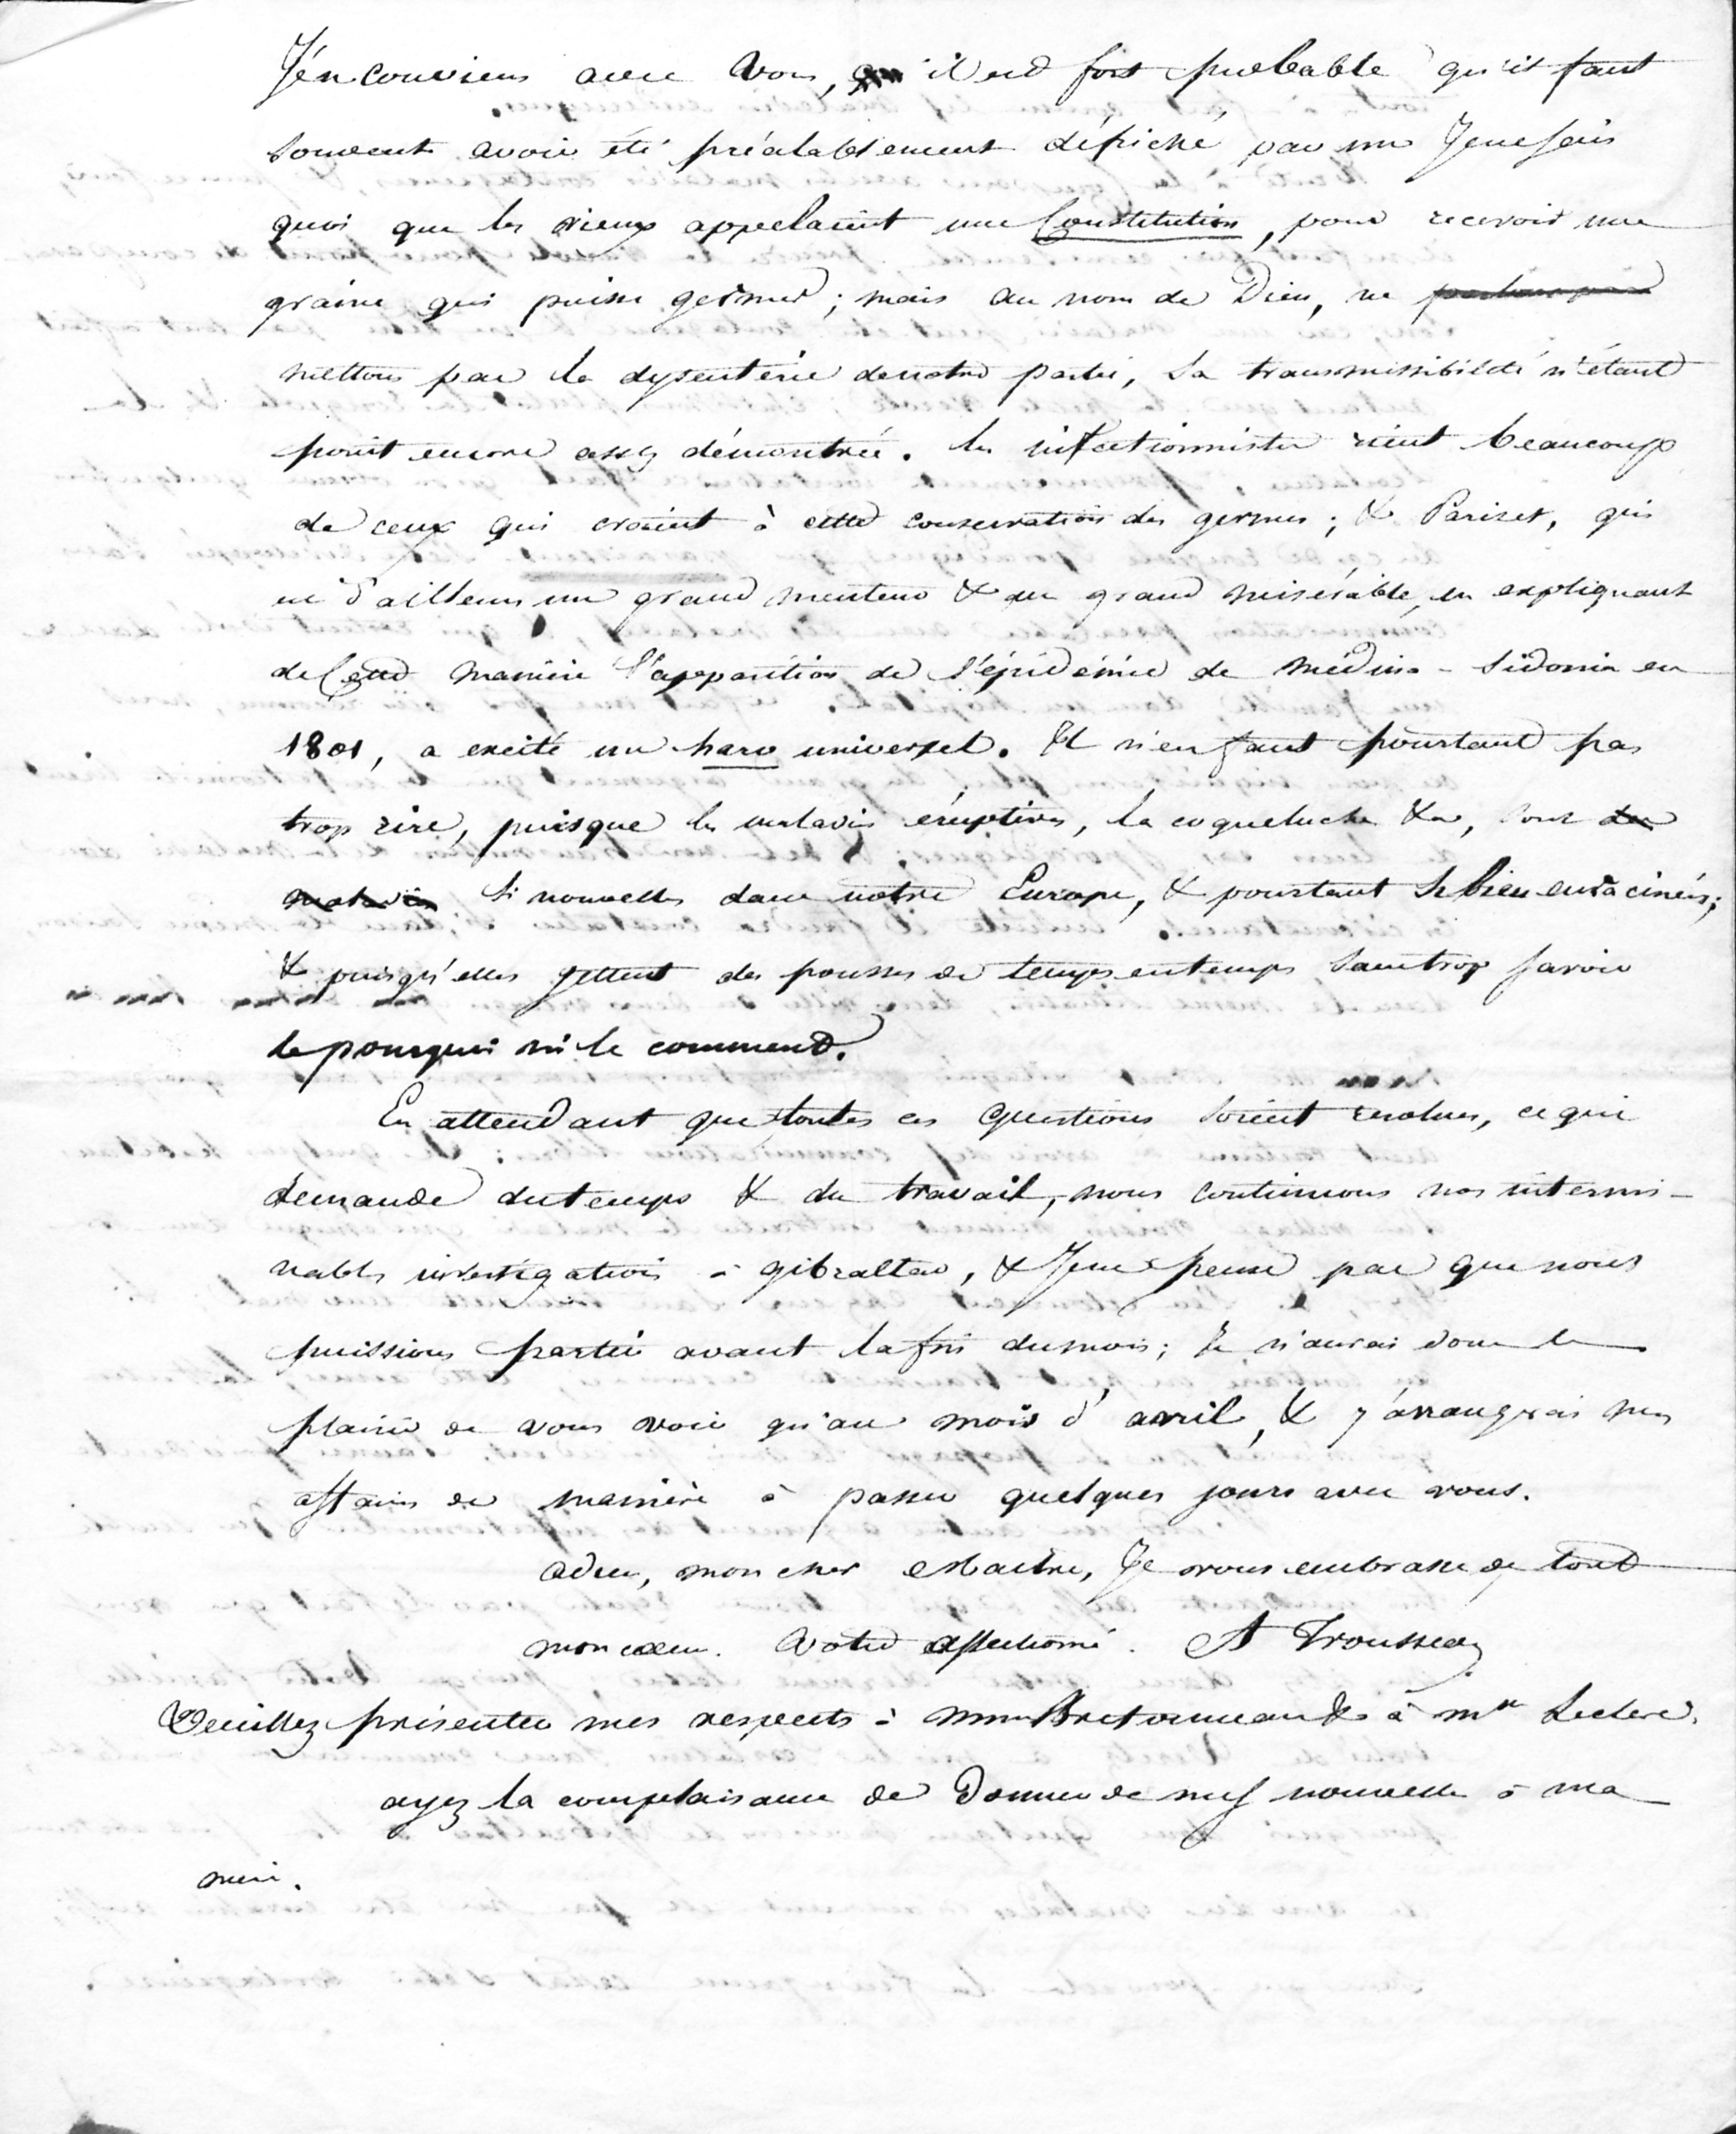 J'en conviens avec vous, qu'il est fort probable qu'il faut
souvent avoir été préalablement défriché par un Je ne sais
quoi que les vieux appelaient une Constitution, pour recevoir une
graine qui puisse germer; mais au nom de Dieu, ne
mettons pas la dysenterie de notre partie, sa transmissibilité n'étant
point encore assez démontrée. les infectionnistes rient beaucoup
de ceux qui croient à cette conservation des germes; & Pariset, qui
est d'ailleurs un grand menteur & un grand misérable, en expliquant
de Cette manière l'apparition de l'épidémie de médina-sidonia en
1801, a excité un haro universel. Il n'en faut pourtant pas
trop rire, puisque les maladies éruptives, la coqueluche &a, sont des
maladies si nouvelles dans notre Europe, & pourtant si bien enracinées;
& puisqu'elles jettent des pousses de temps en temps sans trop savoir
le pourquoi ni le comment.
En attendant que toutes ces questions soient resolues, ce qui
demande du temps & du travail, nous continuons nos intermi-
nables investigations à gibraltar, & Je ne pense pas que nous
puissions partir avant la fin du mois; Je n'aurai donc le
plaisir de vous voir qu'au mois d'avril, & j'arrangerai mes
affaires de manière à passer quelques jours avec vous.
adieu, mon cher Maitre, Je vous embrasse de tout
mon cœur. Votre affectionné. A Trousseau
Veuillez présenter mes respects à Mme Bretonneau & à mr Leclerc.
ayez la complaisance de donner de mes nouvelles à ma
mère.